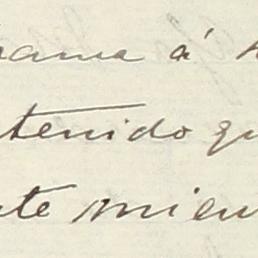 rama á
tenido qu
te mien